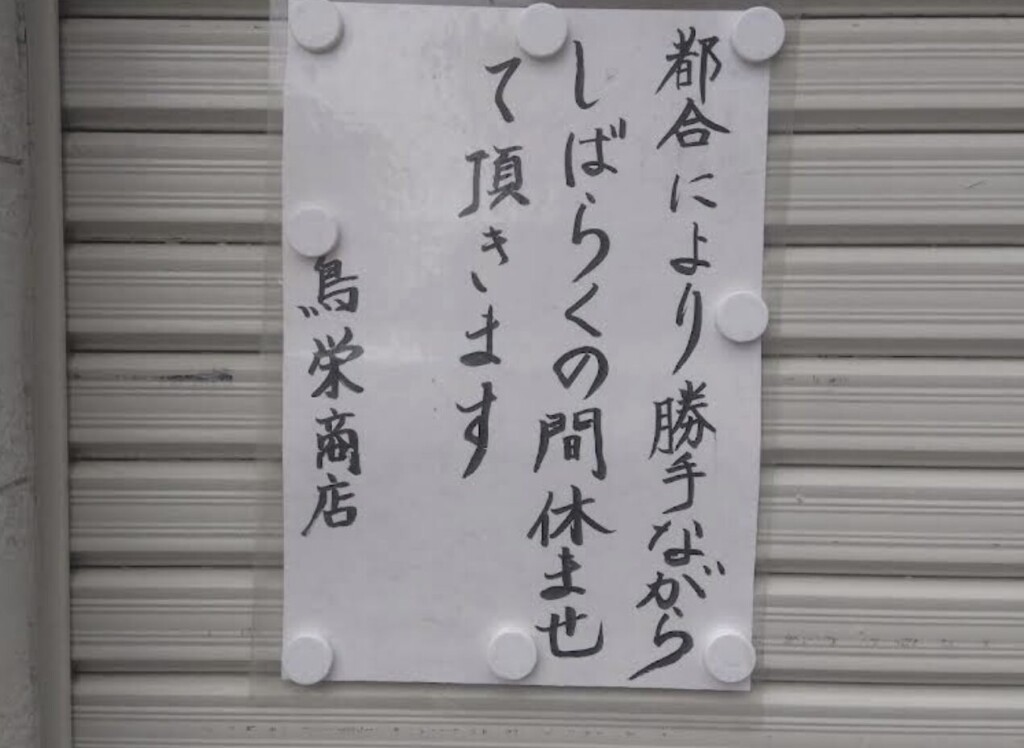 都合により勝手ながら
しばらくの間休ませ
て頂きます
鳥栄商店